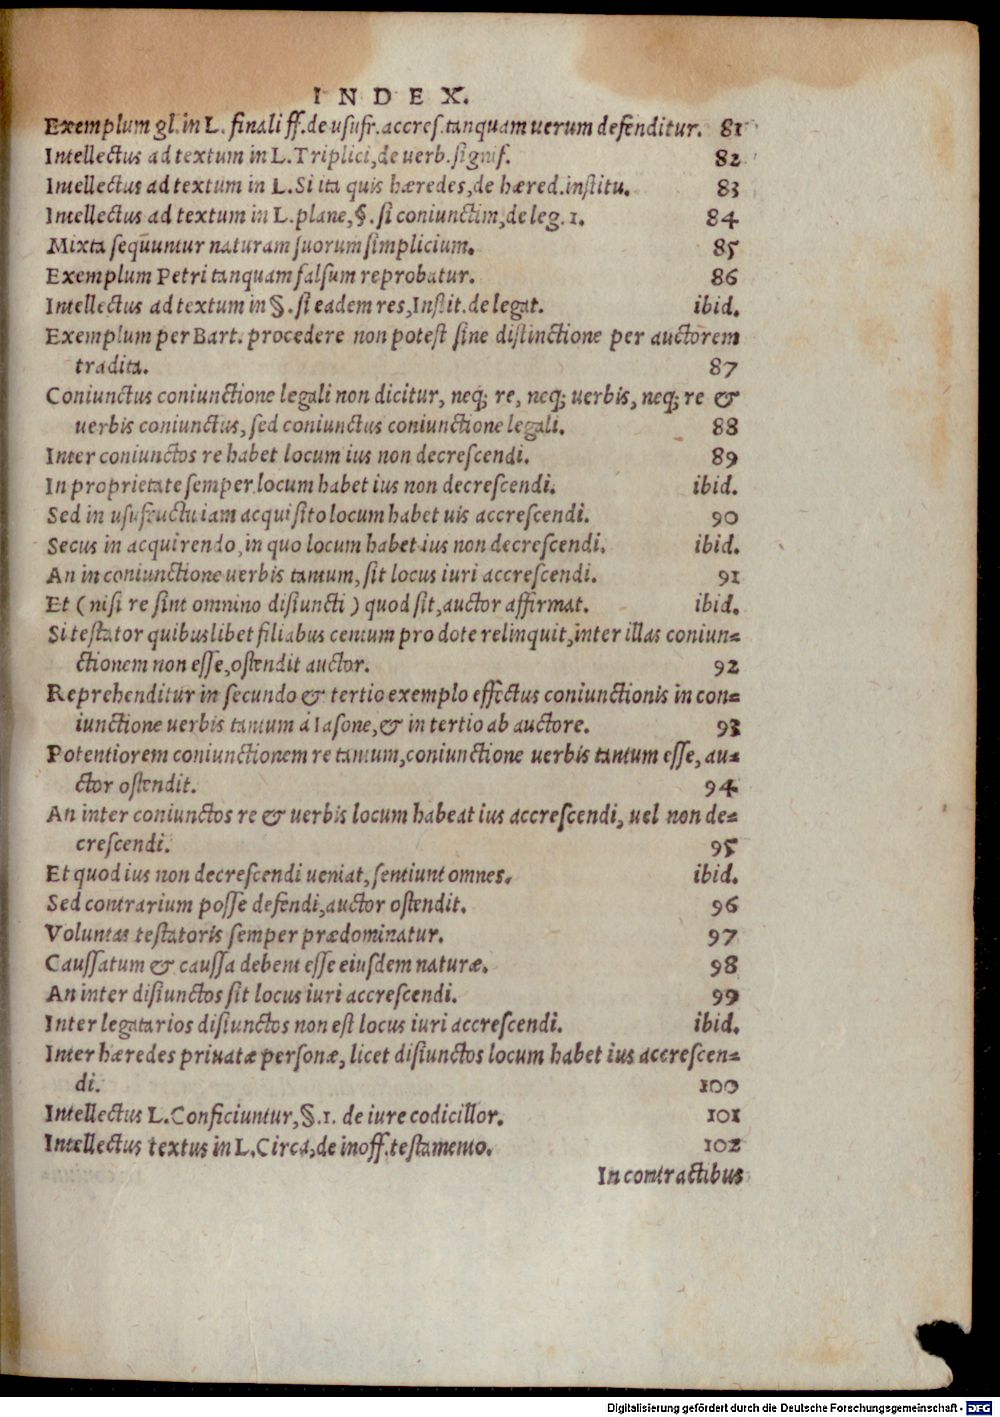 INDEX.
Exemplum gl. in L. finali ff. de usufr. accres. tanquam uerum defenditur. 81
Intellectus ad textum in L. Triplici, de uerb. signif. 82
Intellectus ad textum in L. Si ita quis hæredes, de hæred. institu. 83
Intellectus ad textum in L. plane, §. si coniunctim, de leg. 1. 84
Mixta sequuntur naturam suorum simplicium. 85
Exemplum Petri tanquam falsum reprobatur. 86
Intellectus ad textum in §. si eadem res, Instit. de legat. ibid.
Exemplum per Bart. procedere non potest sine distinctione per auctorem
tradita. 87
Coniunctus coniunctione legali non dicitur, neq; re, neq; uerbis, neq; re &
uerbis coniunctus, sed coniunctus coniunctione legali. 88
Inter coniunctos re habet locum ius non decrescendi. 89
In proprietate semper locum habet ius non decrescendi. ibid.
Sed in usufructu iam acquisito locum habet uis accrescendi. 90
Secus in acquirendo, in quo locum habet ius non decrescendi. ibid.
An in coniunctione uerbis tantum, sit locus iuri accrescendi. 91
Et (nisi re sint omnino disiuncti) quod sit, auctor affirmat. ibid.
Si testator quibuslibet filiabus centum pro dote relinquit, inter illas coniun=
ctionem non esse, ostendit auctor. 92
Reprehenditur in secundo & tertio exemplo effectus coniunctionis in con=
iunctione uerbis tantum á Iasone, & in tertio ab auctore. 93
Potentiorem coniunctionem re tantum, coniunctione uerbis tantum esse, au=
ctor ostendit. 94
An inter coniunctos re & uerbis locum habeat ius accrescendi, uel non de=
crescendi. 95
Et quod ius non decrescendi ueniat, sentiunt omnes. ibid.
Sed contrarium posse defendi, auctor ostendit. 96
Voluntas testatoris semper prædominatur. 97
Caussatum & caussa debent esse eiusdem naturæ. 98
An inter disiunctos sit locus iuri accrescendi. 99
Inter legatarios disiunctos non est locus iuri accrescendi. ibid.
Inter hæredes priuatæ personæ, licet disiunctos locum habet ius accrescen=
di. 100
Intellectus L. Conficiuntur, §. 1. de iure codicillor. 101
Intellectus textus in L. Circa, de inoff. testamento. 102
In contractibus
Digitalisierung gefördert durch die Deutsche Forschungsgemeinschaft - DFG